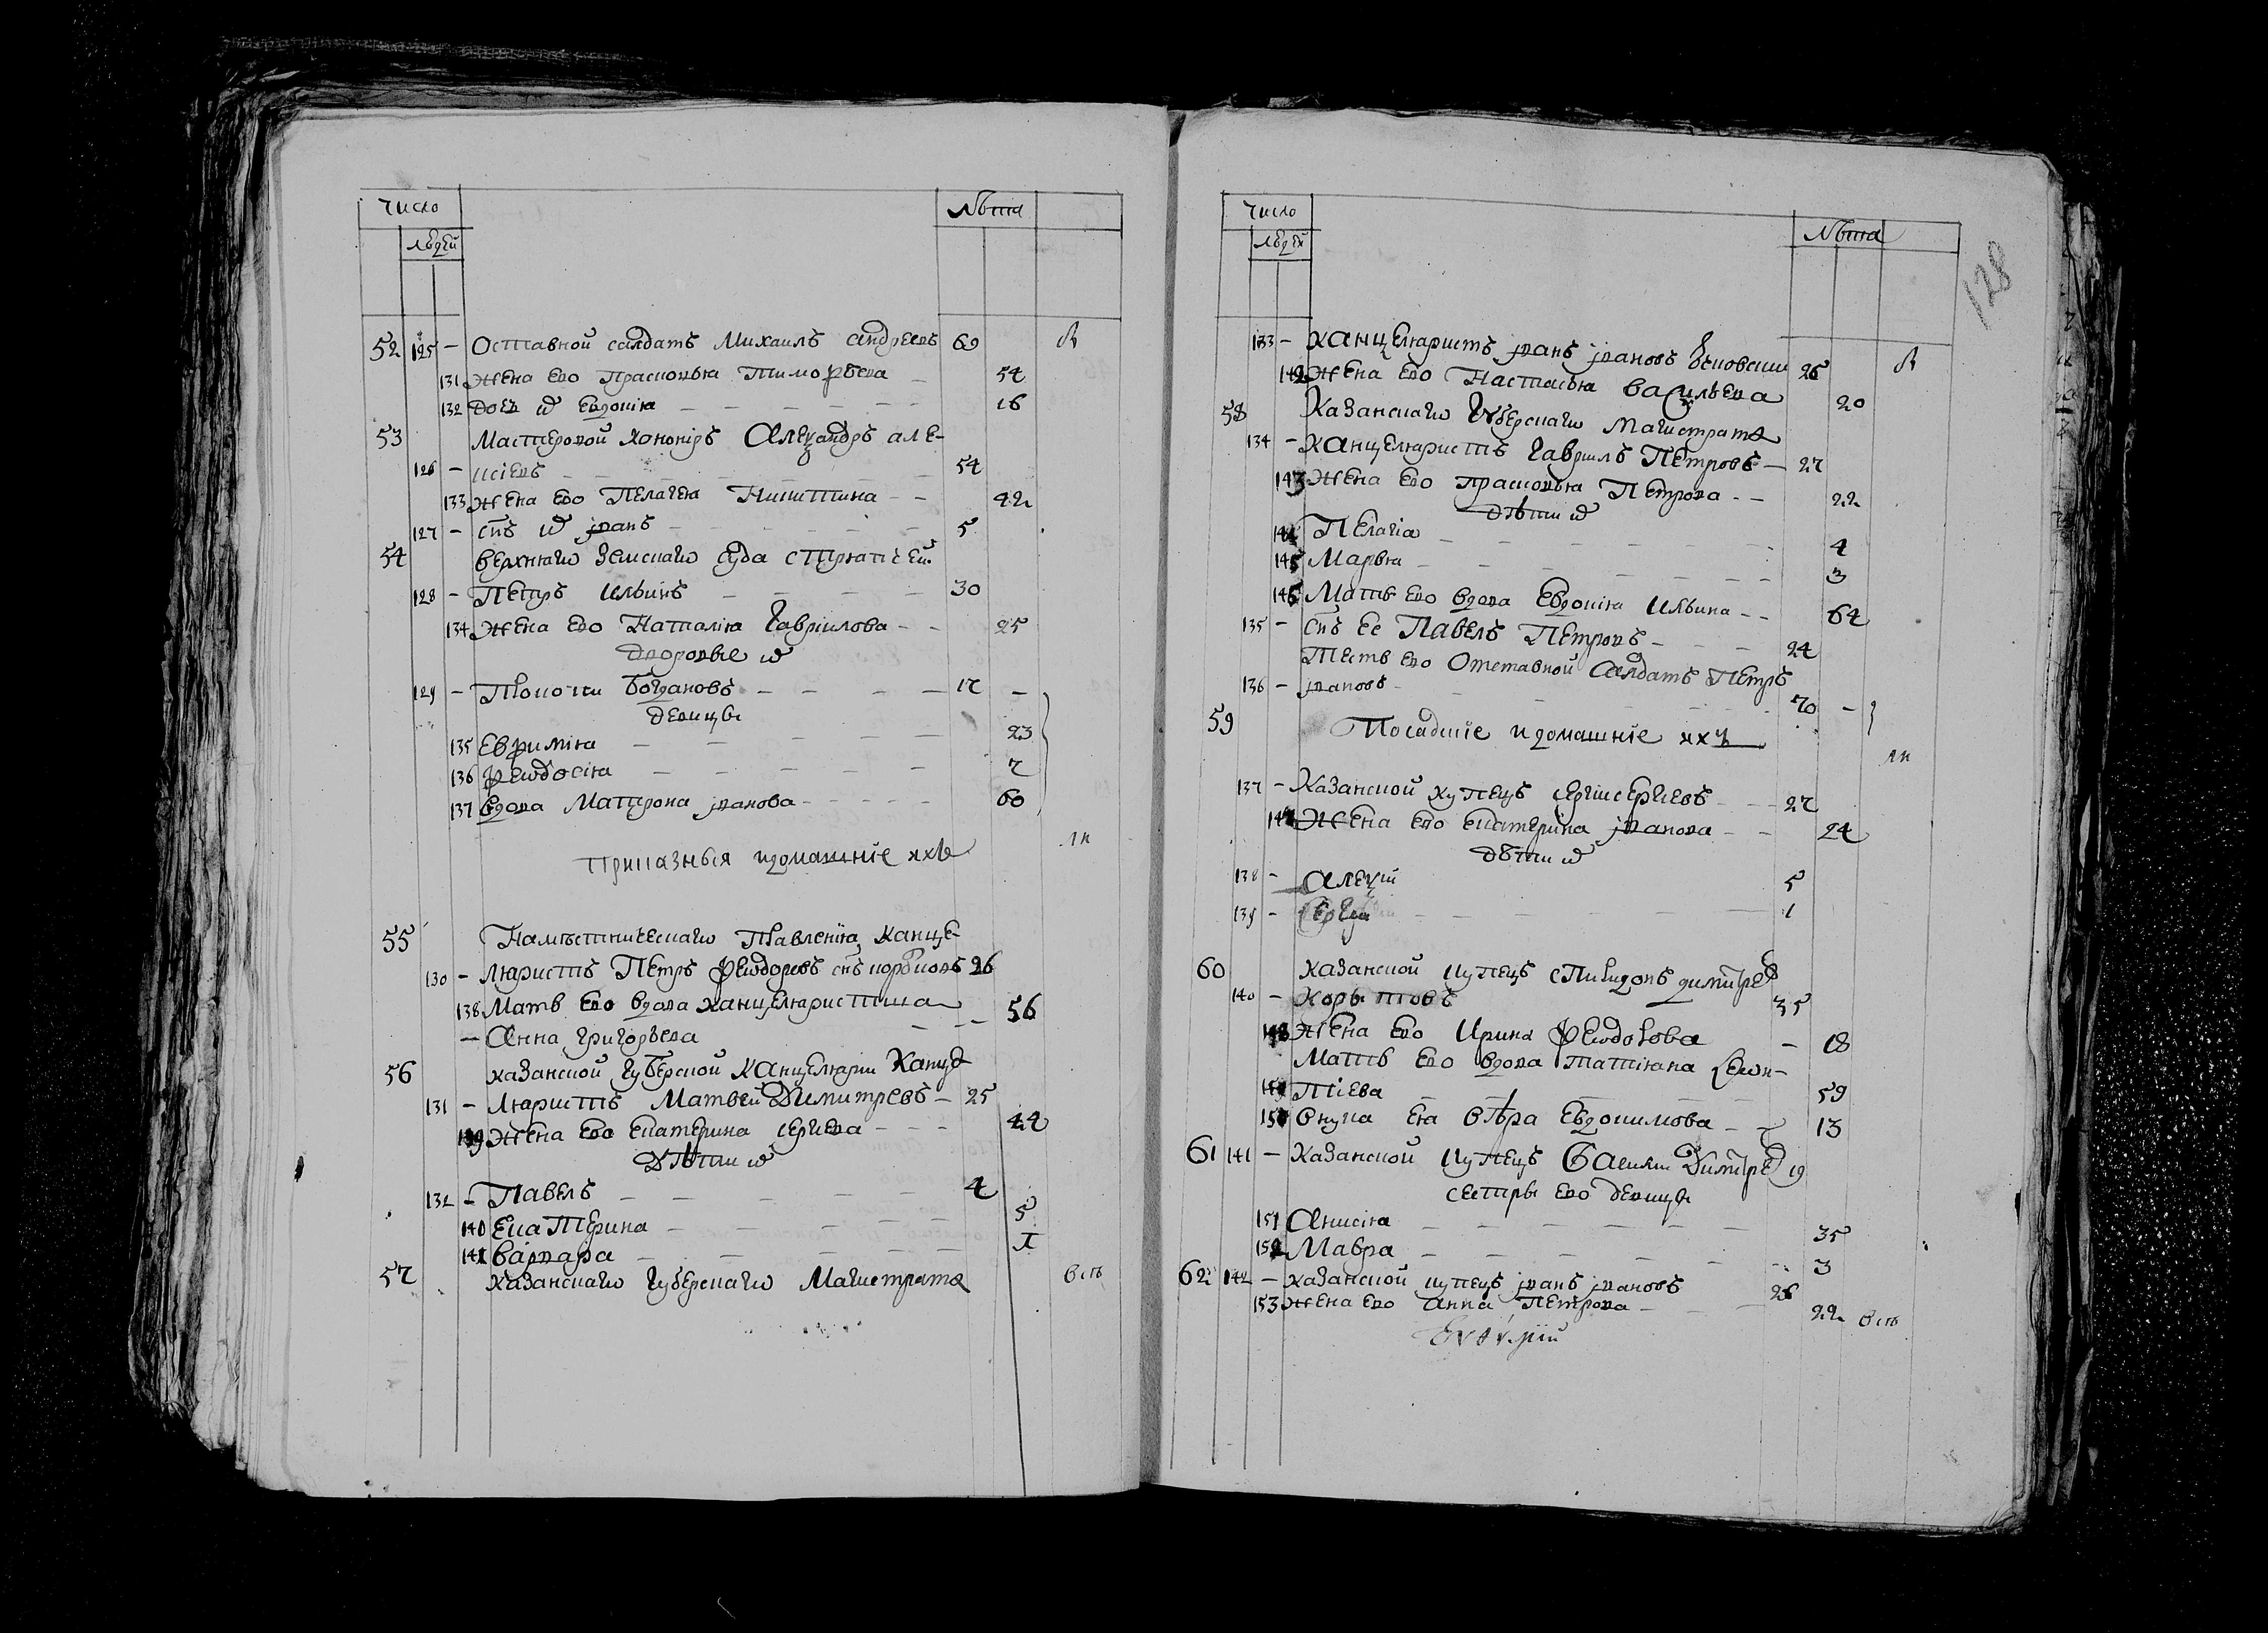 число лѣта
людей
52 125 - Оставной салдатъ Михаилъ андреевъ 69
131 жена ево прасковья тимофѣева - 54
132 дочь и͠ евдокія 16
53 Мастеровой канониръ Алеѯандръ але-
126 - ксіевъ 54
133 жена ево Пелагея Никитина - - 42
127 - сн҃ъ и͠ иванъ 5
54 верхняго земскаго суда стряпчей
128 - Петръ ильинъ 30
134 жена ево Наталія Гавріилова - - 25
дворовые и͠
129 - Богдановъ 17 -
девицы
135 Евфимія 23
136 феодосія 7
137 вдова Матрона иванова 60
приказныя идомашніе ихъ
55 Намѣстническаго Правленія канце-
130 - ляристъ Петръ феодоровъ сн҃ъ 26
138 Мать ево вдова канцеляристша
- Анна григорьева 56
56 казанской губерской канцеляріи канце
131 - ляристъ Матвей Димитревъ - 25
139 жена ево екатерина сергиева - - - 44
Дѣти и͠
132 - Павелъ 4
140 Екатерина 5
141 варвара 1
57 казанскаго губерскаго Магистрата
128
число лѣта
людей
133 - канцеляристъ иванъ ивановъ 26
142 жена ево Настасья васильева 20
58 Казанскаго Губерскаго магистрата
134 - канцеляристъ Гавріилъ Петровъ - 27
143 жена ево прасковья Петрова - - 22
дѣти и͠
144 Пелагіа 4
145 Марья 3
146 Мать ево вдова Евдокія ильина - - 64
135 - сн҃ъ ее Павелъ Петровъ - 24
Тесть ево Отставной Салдатъ Петръ
136 - ивановъ - 70 -
59 Посадскіе идомашніе ихъ
137 - Казанской купецъ сергиевъ 27
147 жена ево екатерина иванова - - 24
дѣти и͠
138 - алеѯій 5
139 - Сергій 1
60 казанской купецъ спиридонъ димитре
140 - Корытовъ 35
148 жена ево ирина феодорова - 18
мать ево вдова татіяна Леон-
149 тіева 59
150 внука ея вѣра Евдокимова - 13
61 141 - Казанской купецъ Василий Димитре 19
сестры ево девицы
151 Анисія 35
152 Мавра 3
62 142 - казанской купецъ иванъ ивановъ 26
153 жена ево анна Петрова - 22